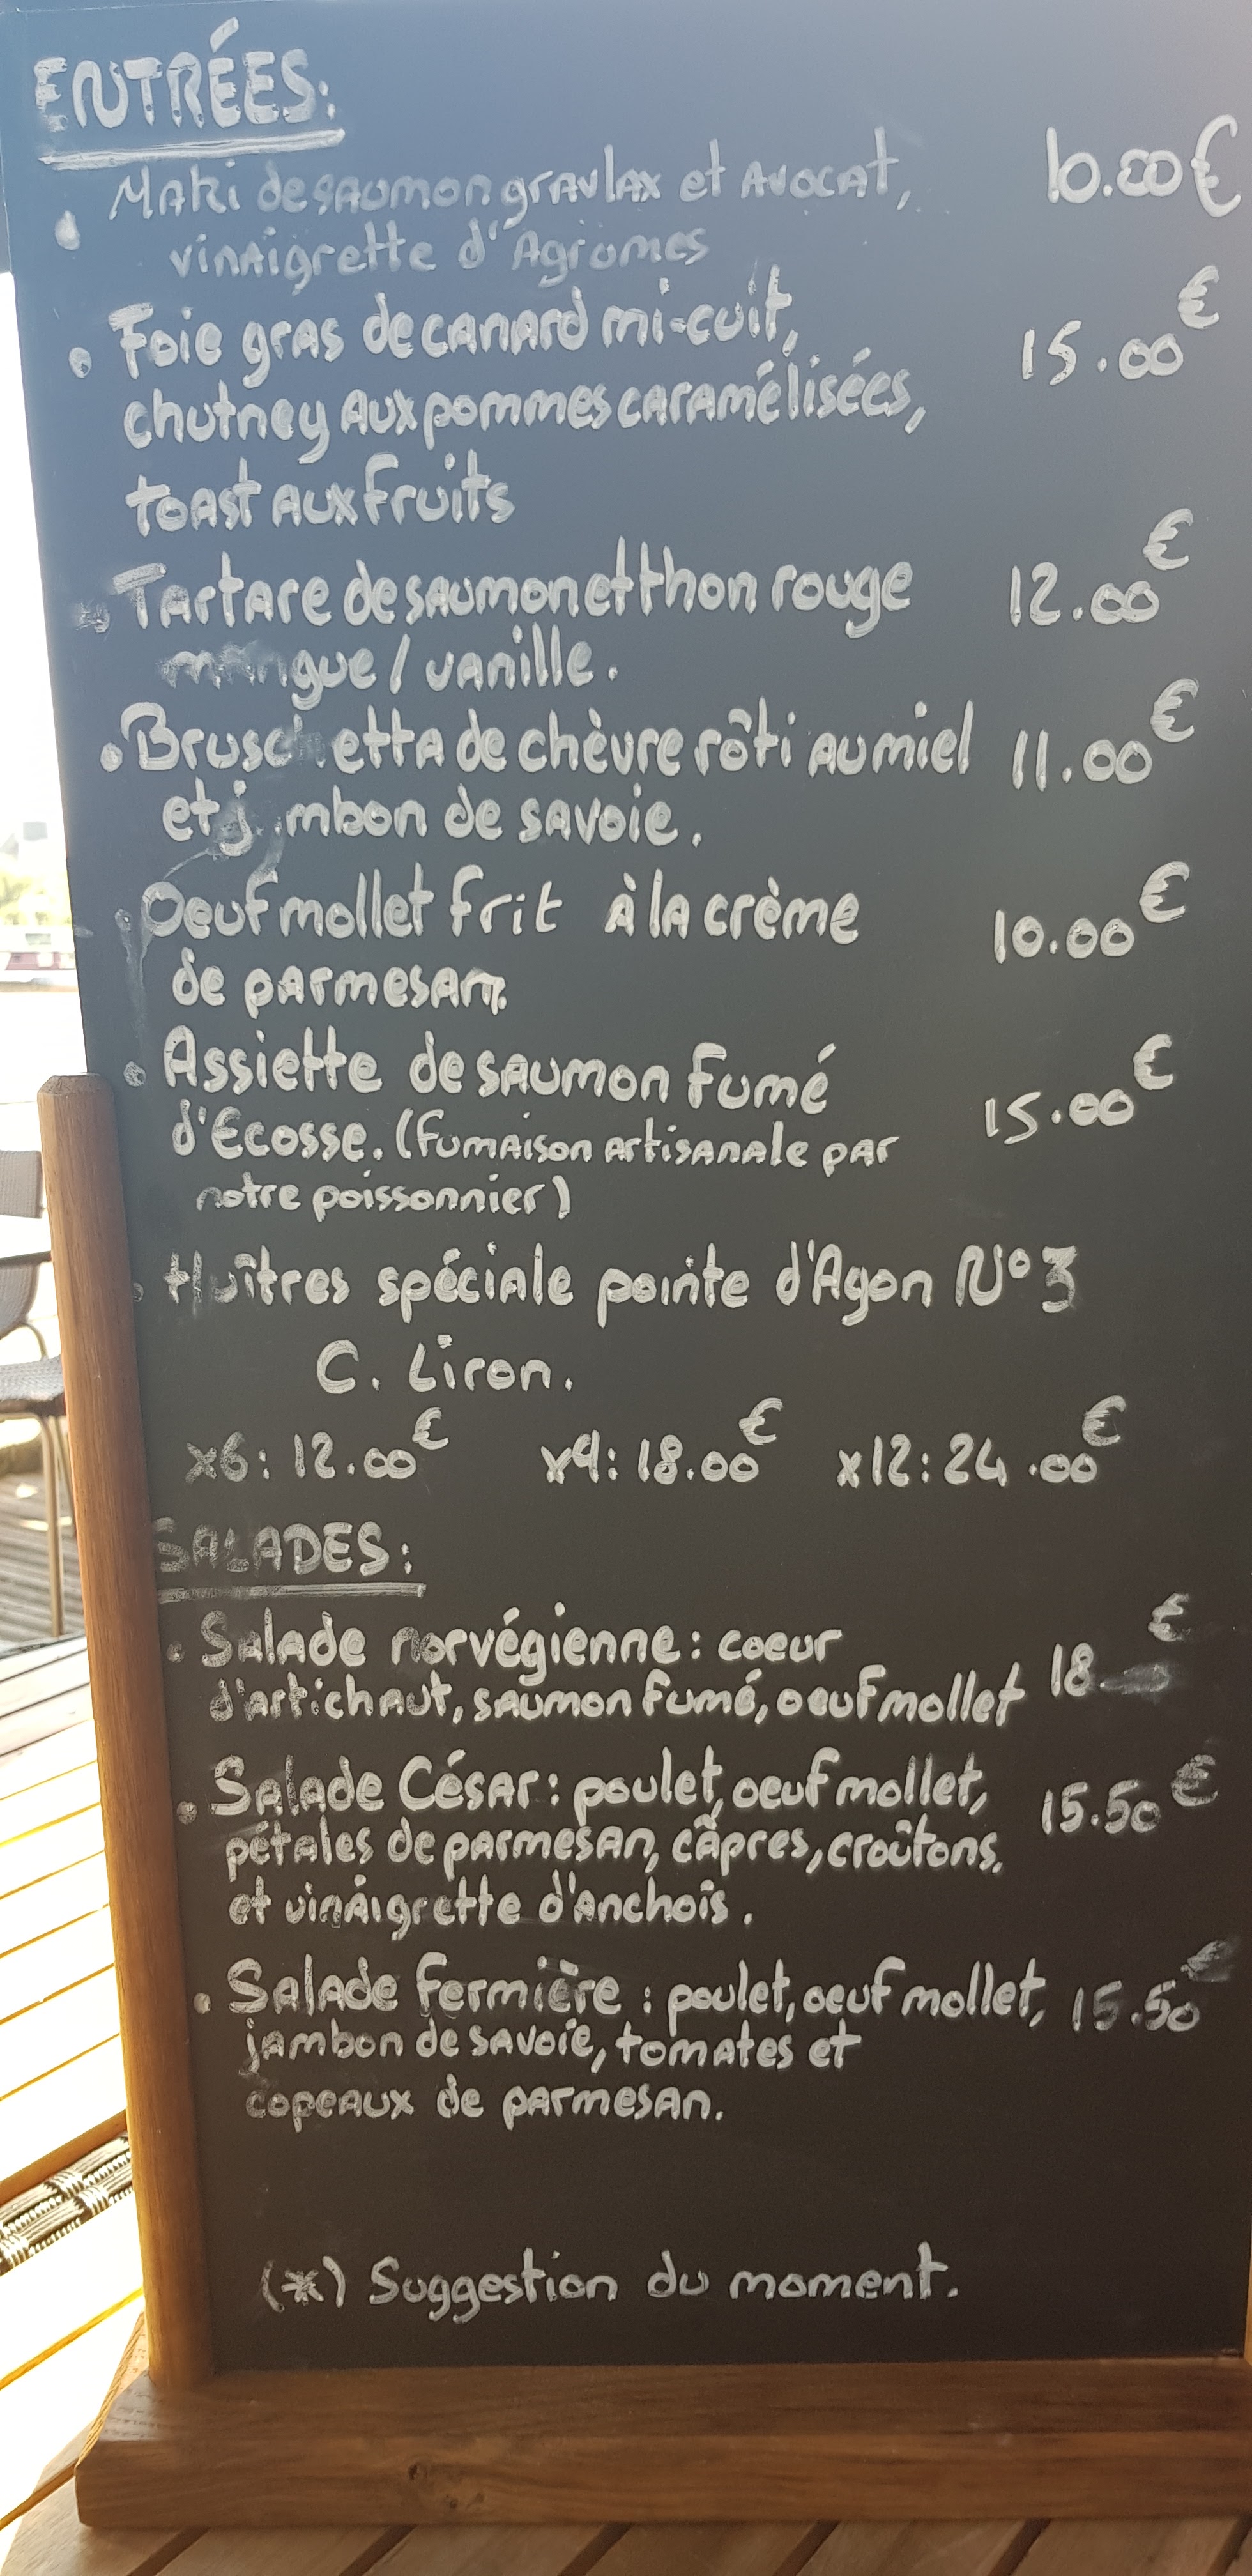 ENTRÉES:
Maki de saumon gravlax et Avocat, 10.00€
vinaigrette d'Agrumes
Foie gras de canard mi-cuit, 15.00€
chutney aux pommes caramélisées,
toast aux fruits
Tartare de saumon et thon rouge 12.00€
mangue / vanille.
Brusc etta de chèvre rôti au miel 11.00€
et j mbon de savoie.
Oeuf mollet frit à la crème 10.00€
de parmesan.
Assiette de saumon fumé
d'Ecosse. (fumaison artisanale par 15.00€
notre poissonnier)
Huîtres spéciale pointe d'Agon N°3
C. Liron.
x6: 12.00€ x9: 18.00€ x12: 24.00€
SALADES:
Salade norvégienne: coeur €
d'artichaut, saumon fumé, oeuf mollet 18
Salade César: poulet, oeuf mollet, 15.50€
pétales de parmesan, câpres, croûtons,
et vinaigrette d'anchois.
Salade fermière: poulet, oeuf mollet, 15.50€
jambon de savoie, tomates et
copeaux de parmesan.
(*) Suggestion du moment.